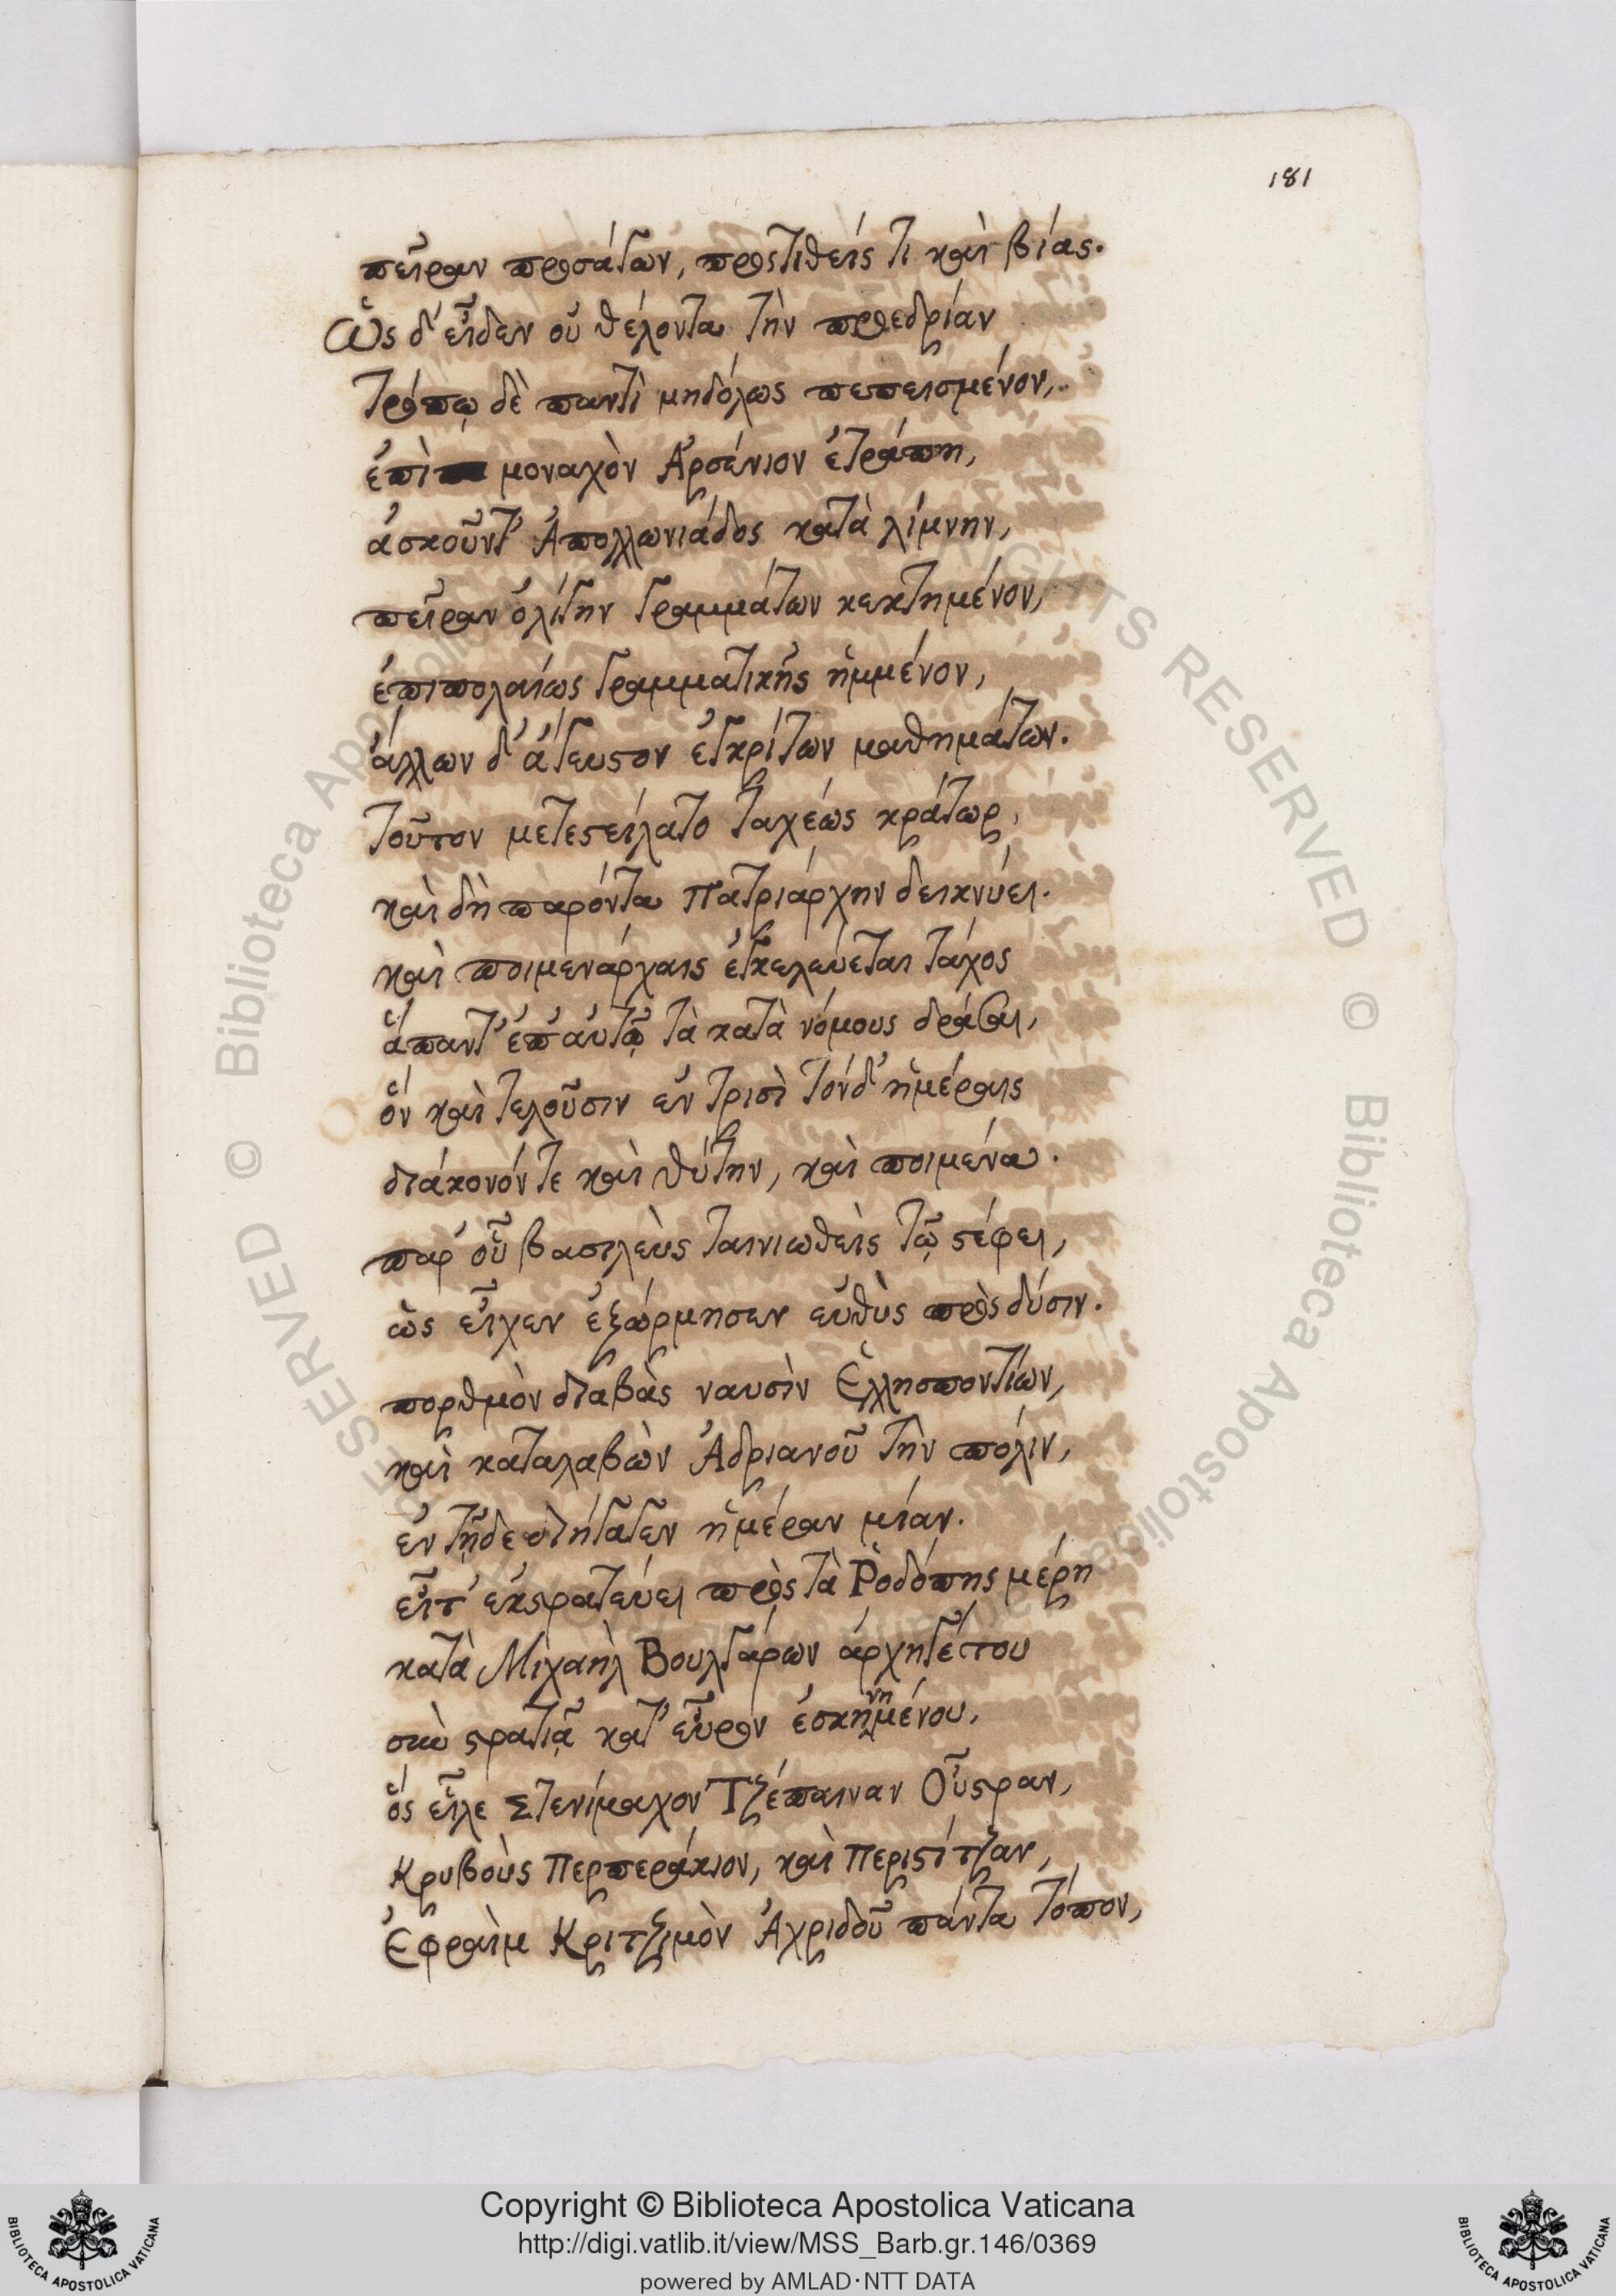 181
πεῖραν προσάγων, προστιθείς τι καὶ βίας.
Ὡς δ' εἶδεν οὐ θέλοντα τὴν προεδρίαν
τρόπῳ δὲ παντὶ μηδόλως πεπεισμένον,
ἐπὶ μοναχὸν Ἀρσένιον ἐτράπη,
ἀσκοῦντ' Ἀπολλωνιάδος κατὰ λίμνην,
πεῖραν ὀλίγην γραμμάτων κεκτημένον,
ἐπιπολαίως γραμματικῆς ἡμμένον,
ἄλλων δ' ἄγευστον ἐγκρίτων μαθημάτων.
τοῦτον μετεστείλατο ταχέως κράτωρ,
καὶ δὴ παρόντα πατριάρχην δεικνύει.
καὶ ποιμενάρχαις ἐγκελεύεται τάχος
ἅπαντ' ἐπ' αὐτῷ τὰ κατὰ νόμους δρᾶσαι,
ὃν καὶ τελοῦσιν ἐν τρισὶ τόνδ' ἡμέραις
διάκονόν τε καὶ θύτην, καὶ ποιμένα.
παρ' οὗ βασιλεὺς ταινιωθεὶς τῷ στέφει,
ὡς εἶχεν ἐξώρμησεν εὐθὺς πρὸς δύσιν.
πορθμὸν διαβὰς ναυσὶν Ἑλλησποντίων,
καὶ καταλαβὼν Ἀδριανοῦ τὴν πόλιν,
ἐν τῇδε διήγαγεν ἡμέραν μίαν.
εἶτ' ἐκστρατεύει πρὸς τὰ Ῥοδόπης μέρη
κατὰ Μιχαὴλ Βουλγάρων ἀρχηγέτου
σὺν στρατιᾷ κατ' εὖρον ἐσκηνημένου,
ὃς εἷλε Στενίμαχον Τζέπαιναν Οὖστραν,
Κρυβοὺς Περπεράκιον, καὶ Περιστίτζαν,
Ἐφραὶμ Κριτζιμὸν Ἀχριδοῦ πάντα τόπον,
Copyright © Biblioteca Apostolica Vaticana
http://digi.vatlib.it/view/MSS_Barb.gr.146/0369
powered by AMLAD·NTT DATA